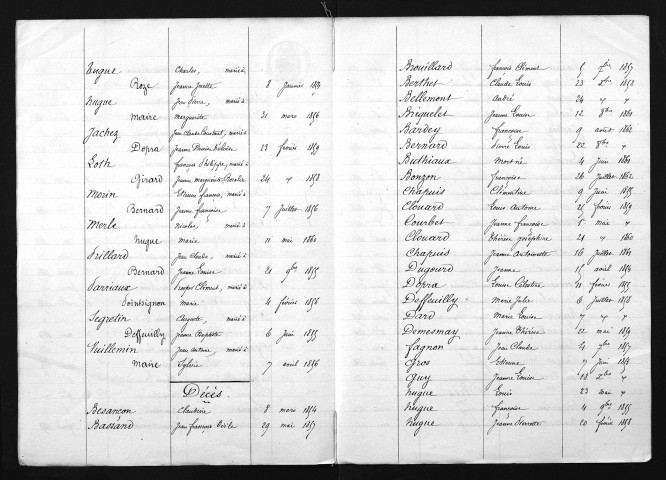 Hugue Charles, marié à
Roze Jeanne 8 Janvier
Hugue Jean Pierre, marié à
Maire Marguerite 31 mars 1856
Jachez Jean Claude Constant, marié à
Dopra Jeanne 23 février 1859
Loth françois Philippe, marié à
Girard Jeanne Marguerite 24 " 1858
Morin Etienne françois, marié à
Bernard Jeanne françoise 7 Juillet 1856
Merle Nicolas, marié à
hugue Marie 11 mai 1860
Jean Claude, marié à
Bernard Jeanne Louise 21 9bre 1855
Sarriaux Clément, marié à
Marie 4 février 1856
Segretin Auguste, marié à
Deffeuilly Jeanne Baptiste 6 Juin 1855
Vuillemin Jean Antoine, marié à
Maire Sylvie 7 avril 1856
Décès.
Besançon Claudine 8 mars 1854
Bassand Jean françois 29 mai 1857
Brouillard françois Clément 5 1857
Berthet Claude Louis 23 Xbre 1858
Bellemont André 24 " "
Briguelet Jeanne Louise 12 8bre 1861
Bardey françoise 9 août 1862
Bernard Pierre Louis 22 8bre "
Buthiaux Mort né 4 Juin 1862
Bonzon françoise 26 Juillet 1862
Chapuis Clémentine 9 Juin 1855
Clouard Louis Antoine 25 février 1859
Courbet Jeanne françoise 5 mai "
Clouard Thérèse Joséphine 21 " 1860
Chapuis Jeanne Antoinette 16 Juillet 1861
Dugourd Jeanne 15 avril 1854
Dopra Louise Célestine 11 février 1855
Deffeuilly Marie Julie 6 Juillet 1858
Dard Marie Louise 7 " "
Demesmay Jeanne Thérèse 22 mai 1859
Fagnon Jean Claude 4 1857
Gros Etienne 7 Juin
Guy Jeanne Louise 18 Xbre "
hugue Louis 23 mai "
hugue françoise 4 9bre 1855
hugue Jeanne Pierrette 20 février 1858